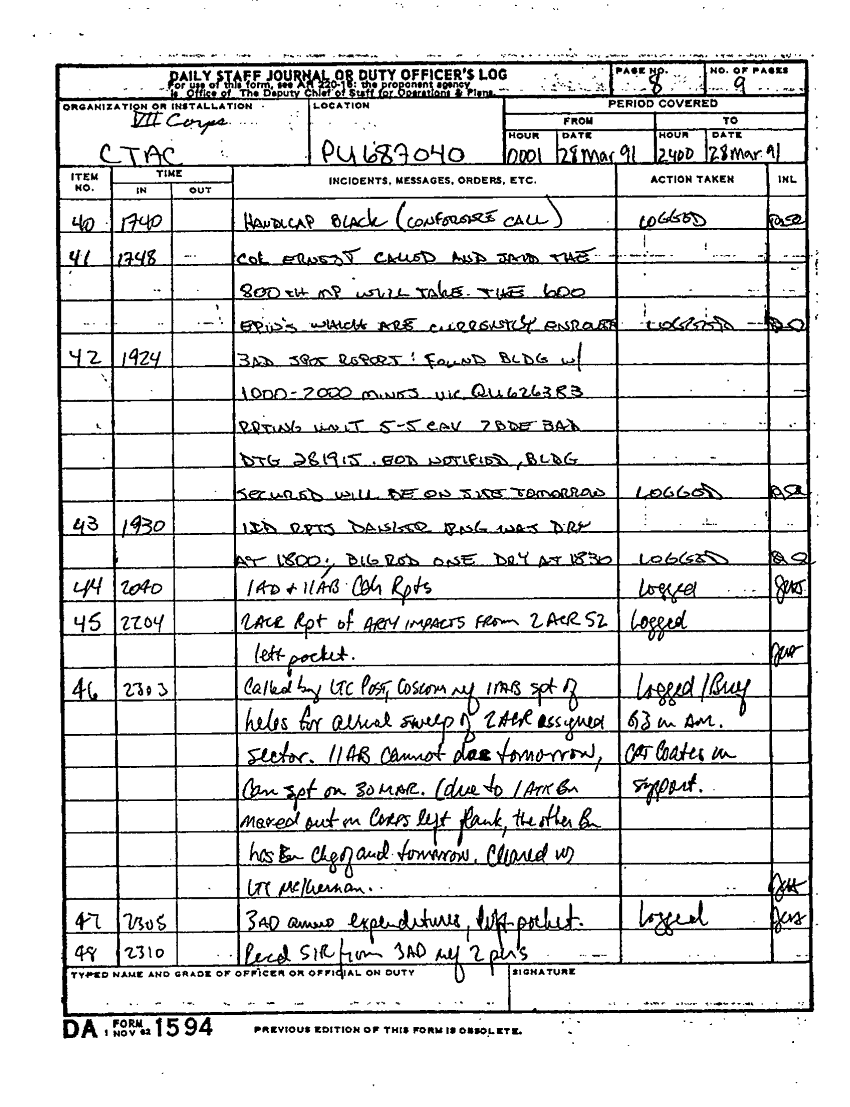 DAILY STAFF JOURNAL OR DUTY OFFICER'S LOG
For use of this form, see AR 220-15; the proponent agency
is Office of The Deputy Chief of Staff for Operations & Plans.
PAGE NO. 8
NO. OF PAGES 9
ORGANIZATION OR INSTALLATION
VII Corps
CTAC
LOCATION
PU687040
PERIOD COVERED
FROM TO
HOUR DATE HOUR DATE
0001 28 Mar 91 2400 28 Mar 91
ITEM NO. TIME IN OUT INCIDENTS, MESSAGES, ORDERS, ETC. ACTION TAKEN INL
40 1740 HANDICAP BLACK (CONFERENCE CALL) LOGGED
41 1748 COL ERNEST CALLED AND SAID THE
800TH MP WILL TAKE THE 600
EPW'S WHICH ARE CURRENTLY ENROUTE LOGGED
42 1924 3AD SPOT REPORT: FOUND BLDG W/
1000-2000 MINES VIC QU626383
RPTING UNIT 5-5 CAV 2BDE 3AD
DTG 281915. EOD NOTIFIED, BLDG
SECURED WILL BE ON SITE TOMORROW LOGGED
43 1930 1ID RPTS DANGER RNG WAS DRY
AT 1800; BIG ROD ONE DRY AT 1830 LOGGED
44 2040 1AD + 11AB Rpts Logged
45 2204 2ACR Rpt of ARTY IMPACTS FROM 2ACR S2 Logged
left pocket.
46 2303 Called by LTC Post, Coscom ref 11AB spt of Logged/Brief
helos for aerial sweep of 2ACR assigned G3 in AM.
sector. 11AB cannot do tomorrow, CPT Coates in
Can spt on 30 MAR. (due to 1 ATK Bn support.
maxed out on Corps left flank, the other Bn
has Bn chg of cmd tomorrow. Cleared w/
LTC McKiernan.
47 2305 3AD ammo expenditures, left pocket. Logged
48 2310 Recd SIR from 3AD ref 2 pers
TYPED NAME AND GRADE OF OFFICER OR OFFICIAL ON DUTY
SIGNATURE
DA FORM 1 NOV 62 1594
PREVIOUS EDITION OF THIS FORM IS OBSOLETE.